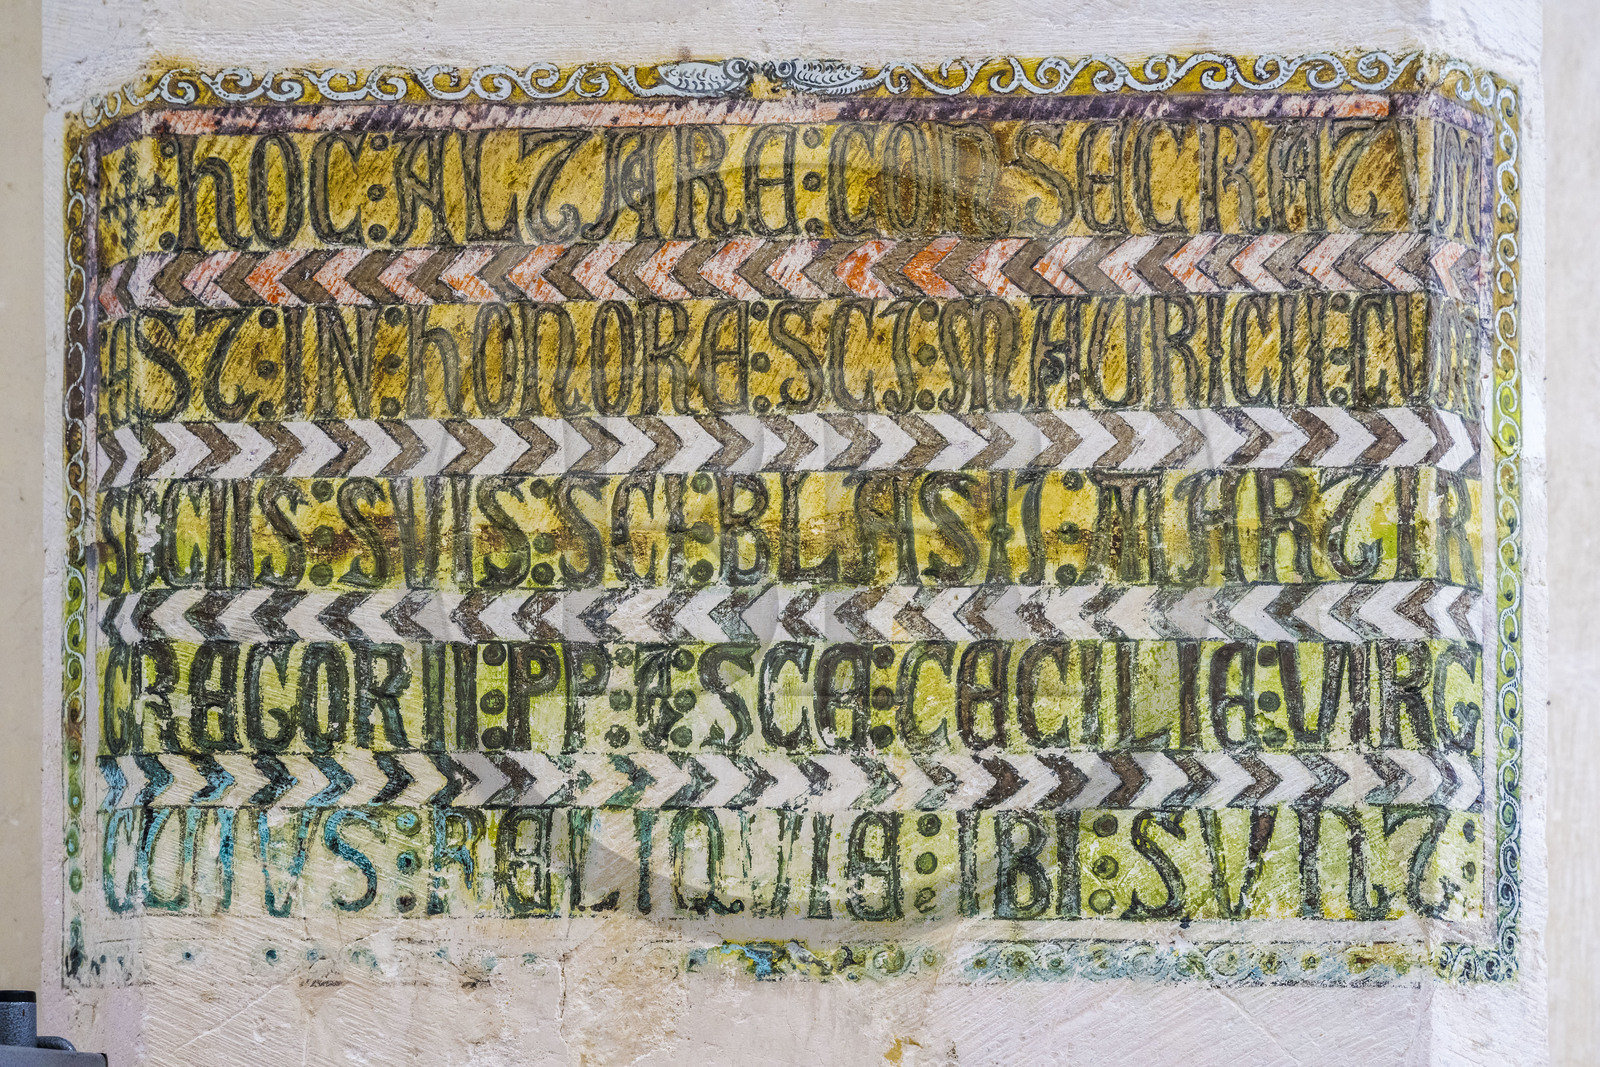 + : HOC : ALTARE : CONSECRATUM
EST : IN : HONORE : SCI : MAURICII : CUM
SOCIIS : SVIS : SCI : BLASII : MARTIR
GREGORII : PP : E : SCE : CECILIE : VIRG
CUIVS : RELIQVIE : IBI : SVNT :